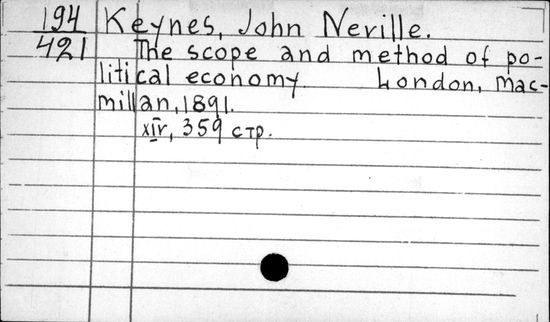 194 Keynes, John Neville.
421 The scope and method of po-
litical economy London, Mac-
millan, 1891.
XIV, 359 стр.